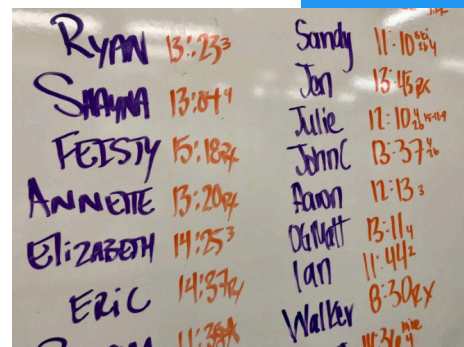 RYAN 13:23 3
SHAYNA 13:04 4
FEISTY 15:18 RX
ANNETTE 13:20 RX
ELIZABETH 14:25 3
ERIC 14:37 RX
Sandy 11:10
Jen 13:45 RX
Julie 12:10
John C 13:37
Aaron 12:13 3
OG Matt 13:11 4
Ian 11:44 2
Walker 8:30 RX